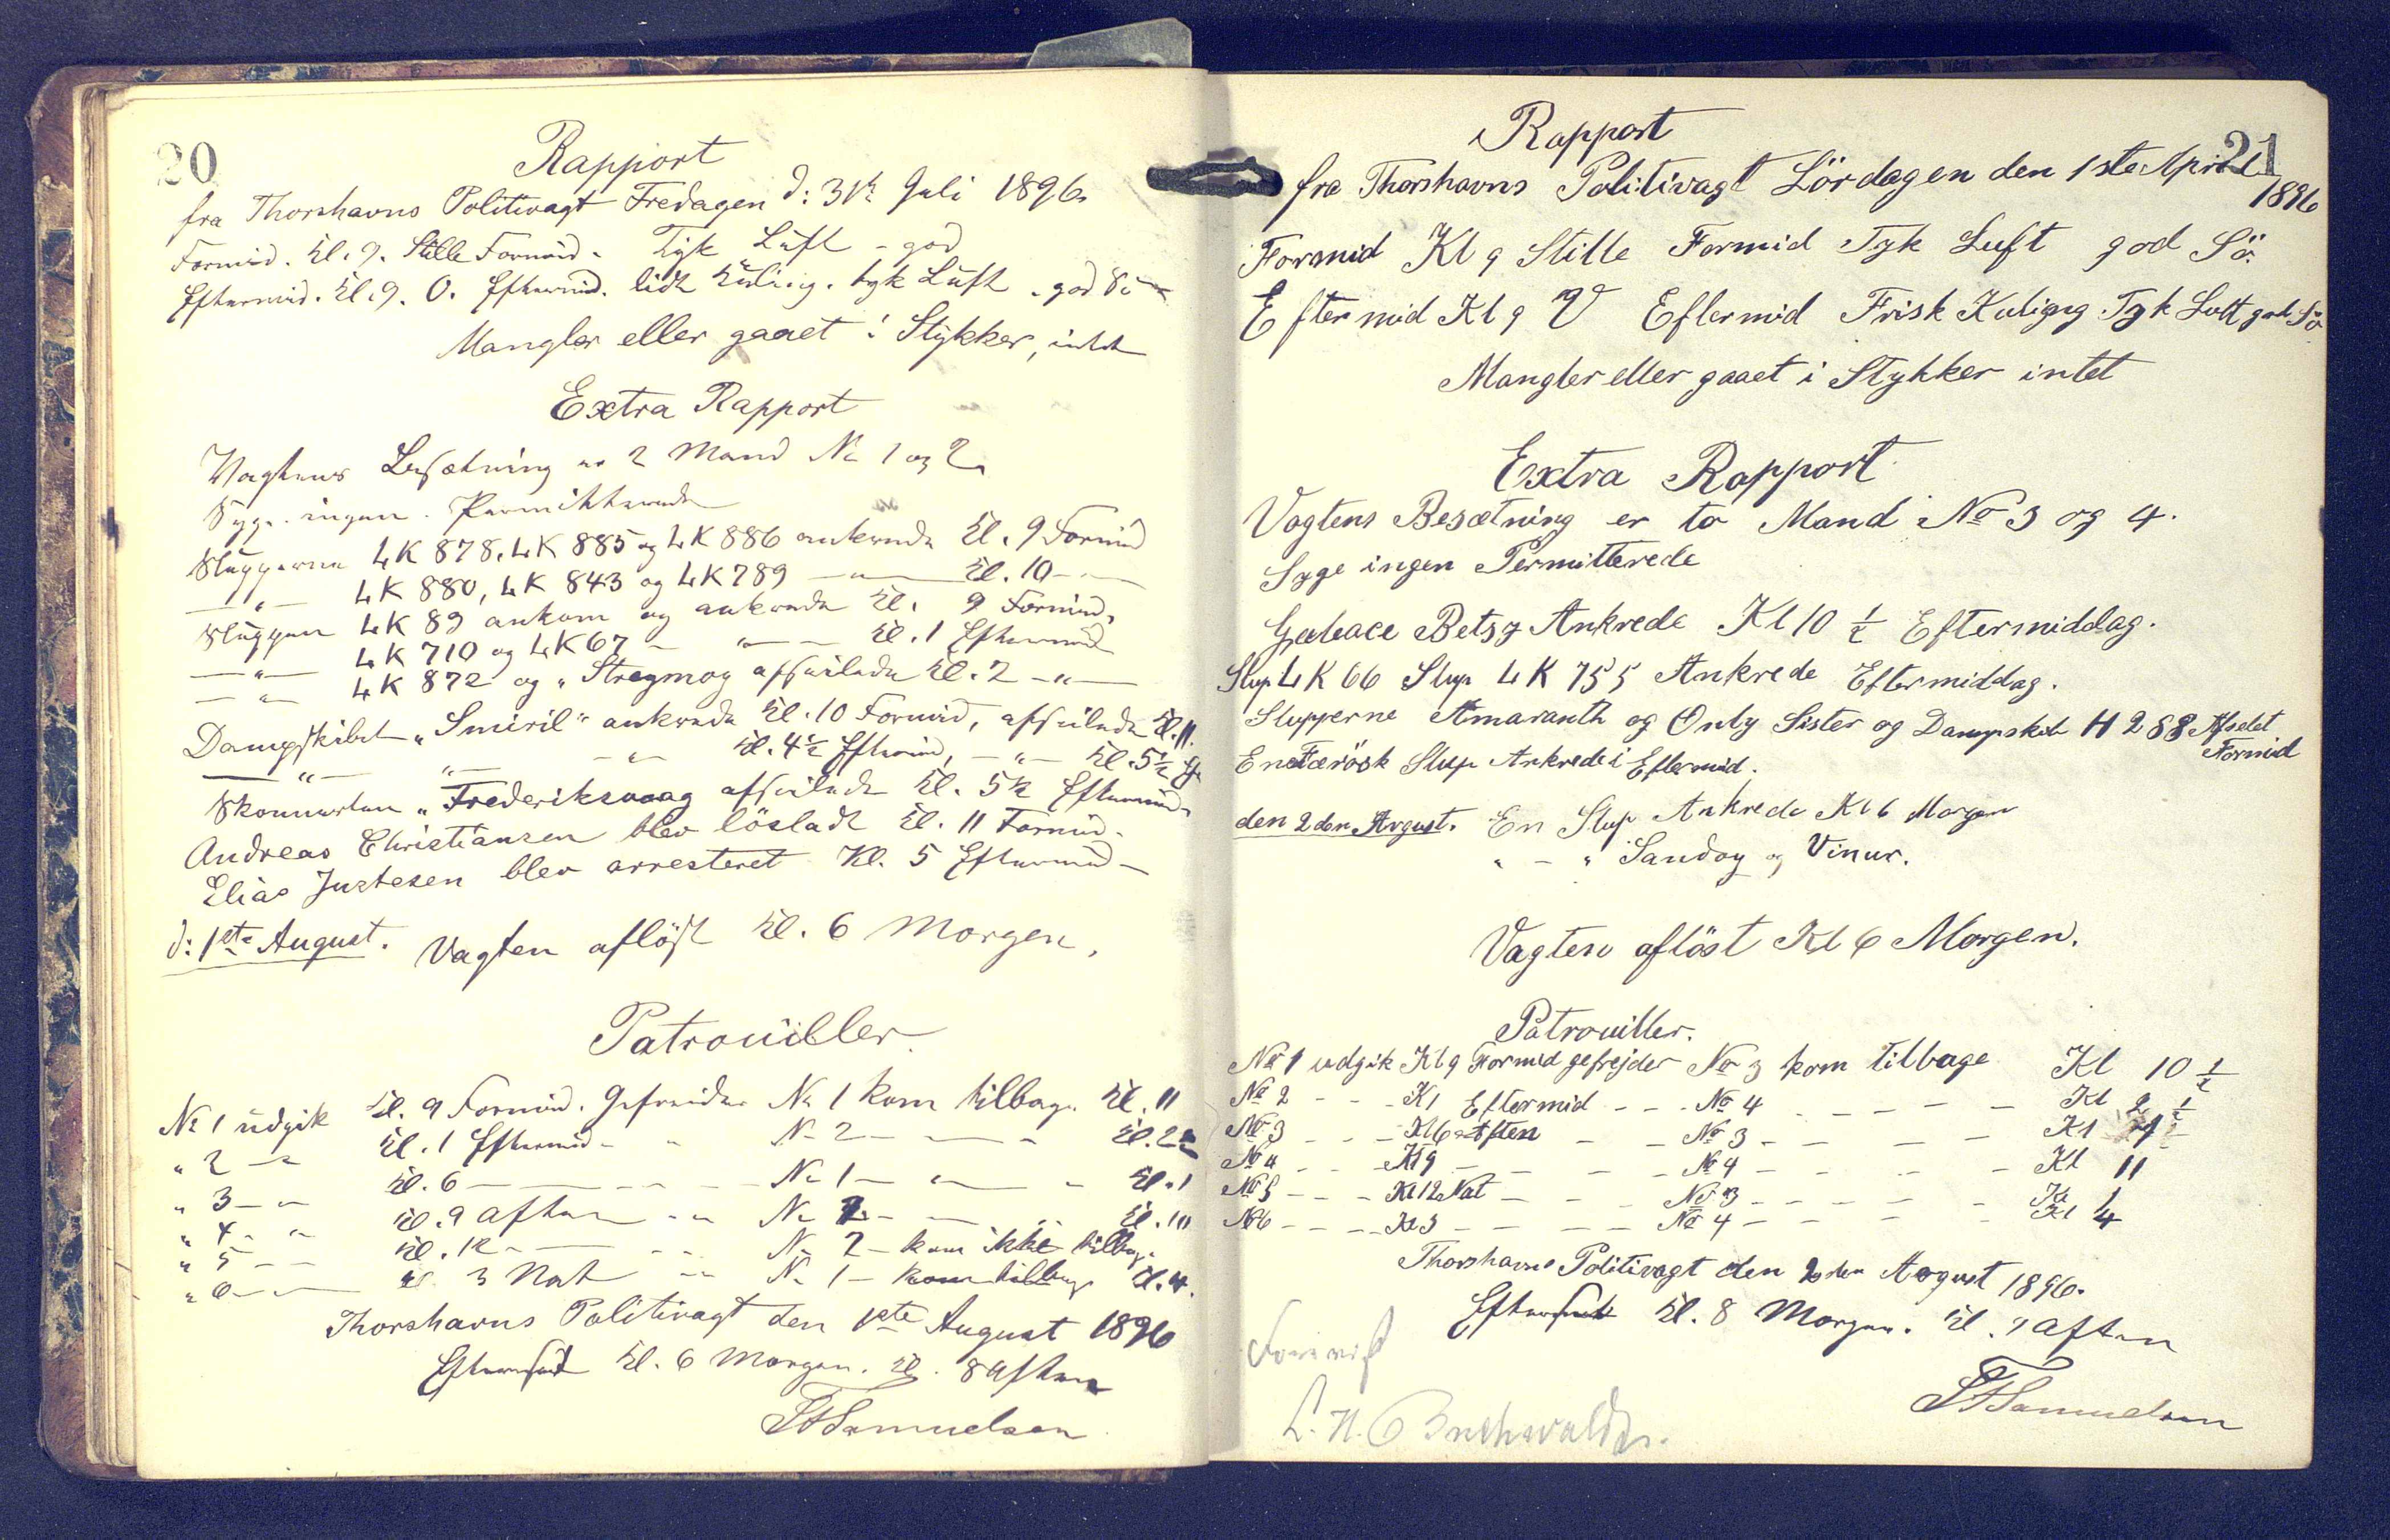 20
Rapport
fra Thorshavns Politivagt Fredagen d: 31te Juli 1896.
Formid. Kl. 9. Stille Formid. Tyk Luft - god
Eftermid. Kl. 9. O. Eftermid. lidt Kuling. tyk Luft - god Sö
Mangler eller gaaet i Stykker, intet
Extra Rapport
Vagtens Besætning er 2 Mand No 1 og 2.
Syge. ingen. Permitterede
Slupperne LK 878, LK 885 og LK 886 ankrede Kl. 9 Formid
—"— LK 880, LK 843 og LK 789 —"— Kl. 10 -"-
Sluppen LK 89 ankom og ankrede Kl. 9 Formid.
—"— LK 710 og LK 67 - "— - Kl. 1 Eftermid
—"— LK 872 og "Streymoy afseilede Kl. 2 -"-
Dampskibet "Smiril" ankrede Kl. 10 Formid, afseilede Kl. 11.
—"— "— -"- Kl. 4½ Eftermid, -"- Kl. 5½ Ef
Skonnerten "Frederiksvaag afseilede Kl. 5½ Eftermid.
Andreas Christiansen blev lösladt Kl. 11 Formid.
Elias Justesen blev arresteret Kl. 5 Eftermid -
d: 1ste August. Vagten aflöst Kl. 6 Morgen.
Patrouiller.
No 1 udgik Kl. 9 Formid. Gefreider No 1 kom tilbage Kl. 11
" 2 -"- Kl. 1 Eftermid - " No 2 - — - Kl. 2½
" 3 -"- Kl. 6 — -"- No 1 - "— " Kl. 1
" 4 -"- Kl. 9 Aften -"- No 2 - — " Kl. 10
" 5 -- Kl. 12 - — -- No 2 - kom ikke tilbage
" 6 -"- Kl. 3 Nat -"- No 1 - kom tilbage Kl. 4.
Thorshavns Politivagt den 1ste August 1896
Efterseet Kl. 6 Morgen. Kl. 8 Aften
Samuelsen
21
Rapport
fra Thorshavns Politivagt Lördagen den 1ste April
1896
Formid Kl 9 Stille Formid Tyk Luft god Sö.
Eftermid Kl 9 V Eftermid Frisk Kuligng Tyk Luft god Sö
Mangler eller gaaet i Stykker intet
Extra Rapport
Vagtens Besætning er to Mand No 3 og 4.
Syge ingen Permitterede
Galeace Betsy Ankrede Kl 10 ½ Eftermiddag.
Slup LK 66 Slup LK 755 Ankrede Eftermiddag.
Slupperne Amaranth og Only Sister og Dampskib H 288 Afselet
Formid
En Færösk Slup Ankrede i Eftermid.
den 2den Avgust. En Slup Ankrede Kl 6 Morgen
" - " Sandoy og Vinur.
Vagten aflöst Kl 6 Morgen.
Patrouiller.
No 1 udgik Kl 9 Formid gefrejder No 3 kom tilbage Kl 10 ½
No 2 - - - Kl 1 Eftermid - - - No 4 - - - - - Kl 2 ½
No 3 - - - Kl 6 Aften - - No 3 - - - - - Kl
No 4 - - - Kl 9 - - - - No 4 - - - - - Kl 11
No 5 - - - Kl 12 Nat - - - No 3 - - - - - Kl 1
No 6 - - - Kl 3 - - - - No 4 - - - - Kl 4
Thorshavns Politivagt den 2den Avgust 1896.
Efterseet Kl. 8 Morgen. Kl. 9 Aften
Samuelsen
Forevist
Buchwaldt.